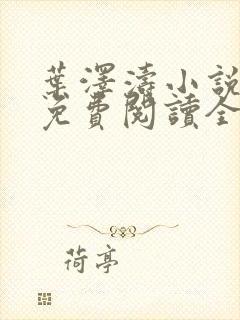 葉澤濤小說
免費閱讀全
荷亭